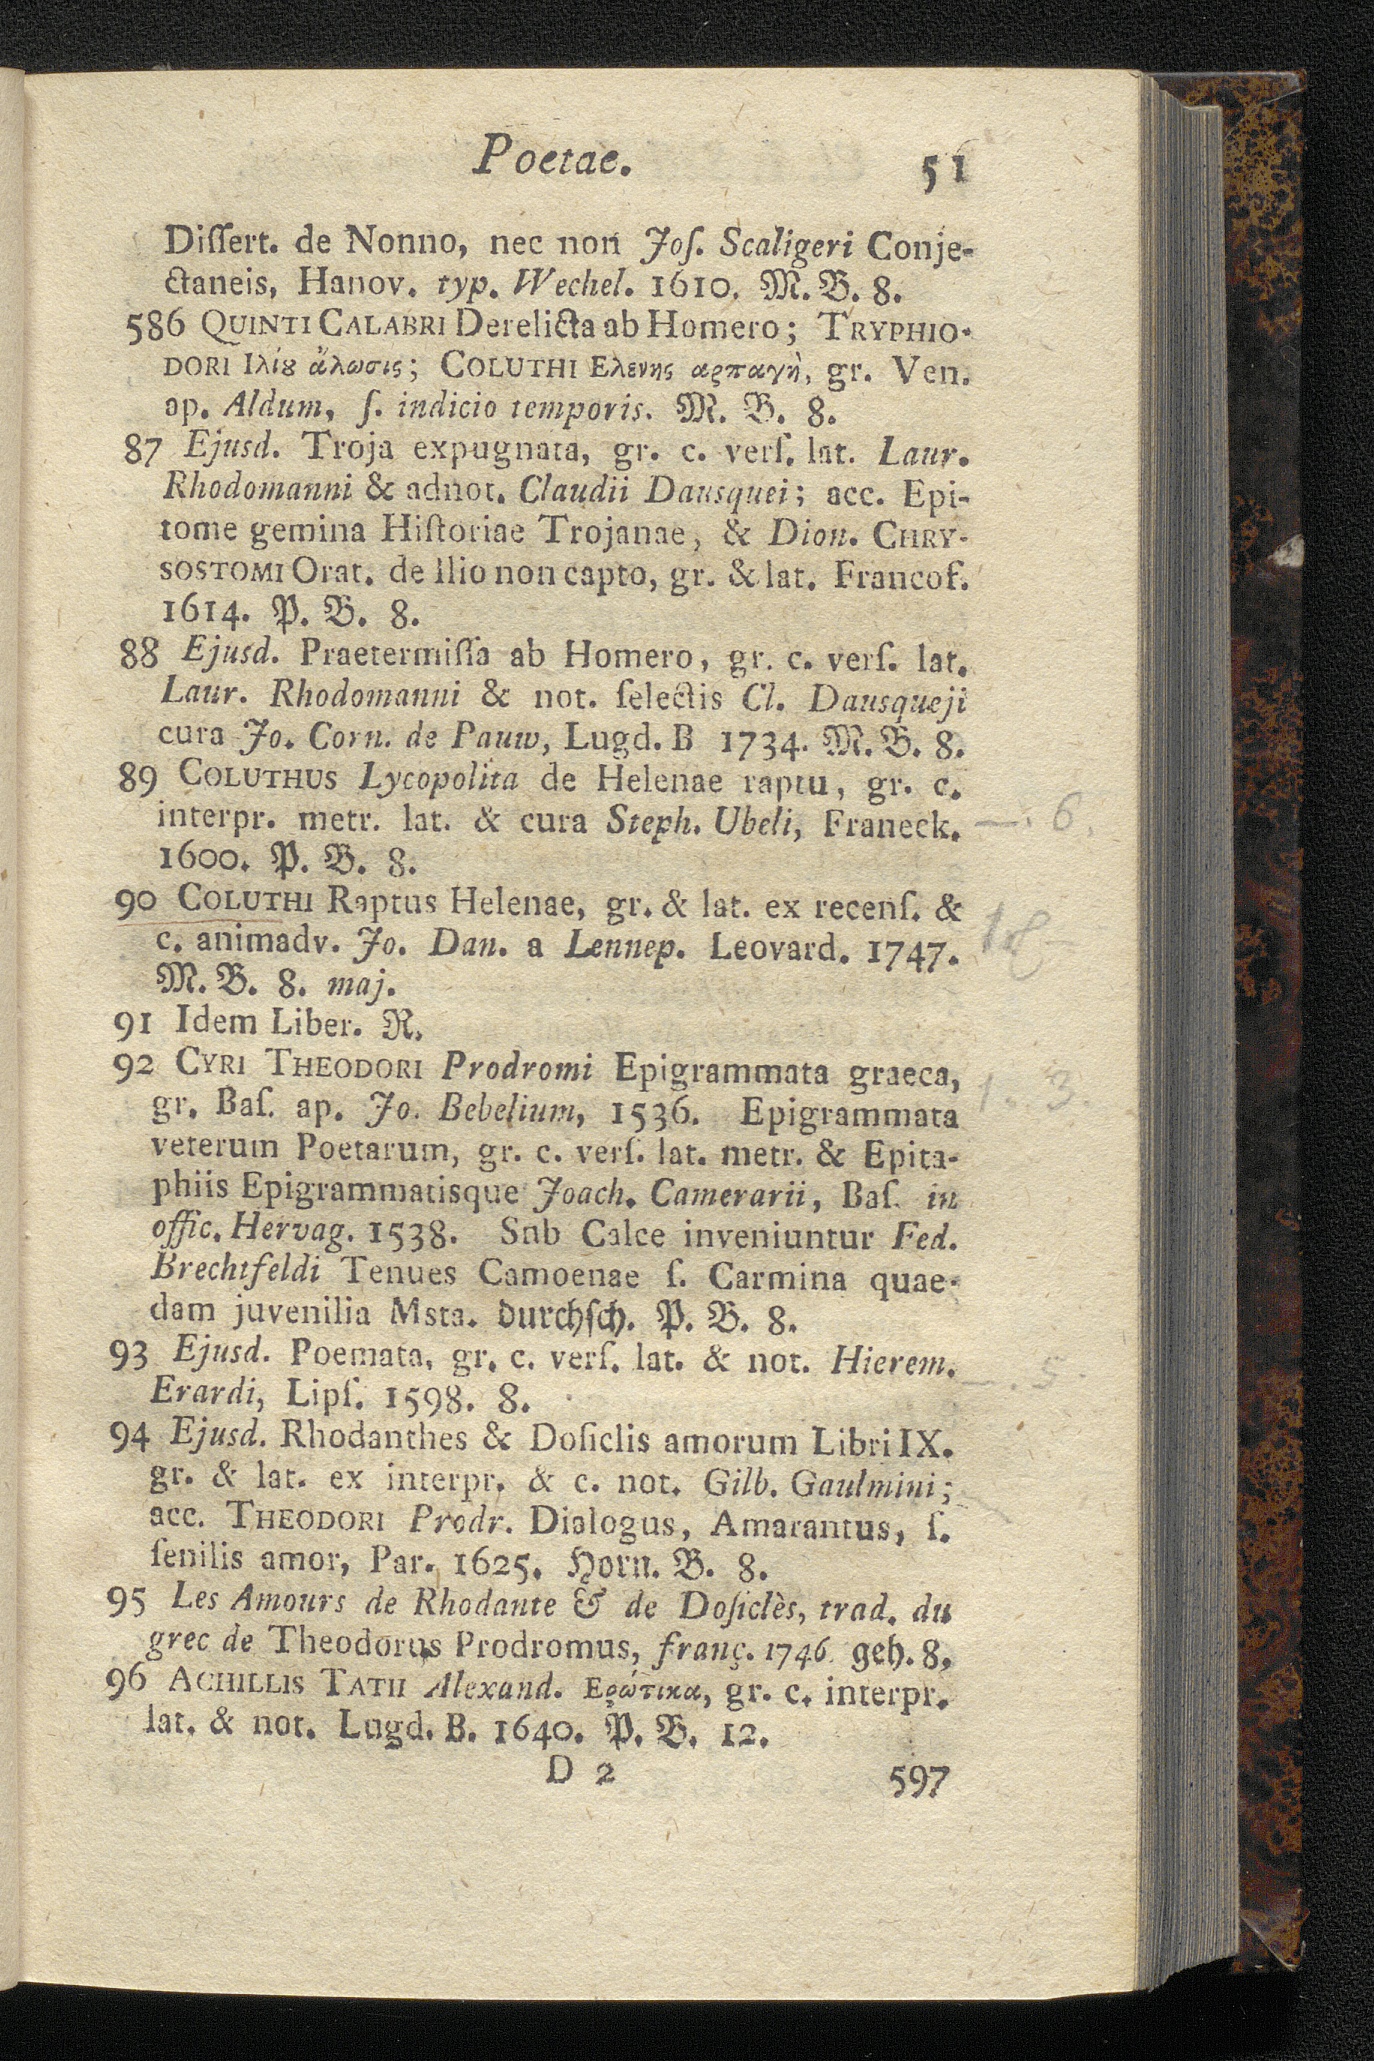 Poetae. 51
Diſſert. de Nonno, nec non Joſ. Scaligeri Conje-
ctaneis, Hanov. typ. Wechel. 1610. M. B. 8.
586 QUINTI CALABRI Derelicta ab Homero; TRYPHIO-
DORI Ιλίȣ ἅλωσις; COLUTHI Ελενης αρπαγὴ, gr. Ven.
ap. Aldum, ſ. indicio temporis. M. B. 8.
87 Ejusd. Troja expugnata, gr. c. verſ. lat. Laur.
Rhodomanni & adnot. Claudii Dausquei; acc. Epi-
tome gemina Hiſtoriae Trojanae, & Dion. CHRY-
SOSTOMI Orat. de Ilio non capto, gr. & lat. Francof.
1614. P. B. 8.
88 Ejusd. Praetermiſſa ab Homero, gr. c. verſ. lat.
Laur. Rhodomanni & not. ſelectis Cl. Dausqueji
cura Jo. Corn. de Pauw, Lugd. B 1734. M. B. 8.
89 COLUTHUS Lycopolita de Helenae raptu, gr. c.
interpr. metr. lat. & cura Steph. Ubeli, Franeck. —. 6.
1600. P. B. 8.
90 COLUTHI Raptus Helenae, gr. & lat. ex recenſ. &
c. animadv. Jo. Dan. a Lennep. Leovard. 1747.
M. B. 8. maj.
91 Idem Liber. R.
92 CYRI THEODORI Prodromi Epigrammata graeca, 1. 3.
gr. Baſ. ap. Jo. Bebelium, 1536. Epigrammata
veterum Poetarum, gr. c. verſ. lat. metr. & Epita-
phiis Epigrammatisque Joach. Camerarii, Baſ. in
offic. Hervag. 1538. Snb Calce inveniuntur Fed.
Brechtfeldi Tenues Camoenae ſ. Carmina quae-
dam juvenilia Msta. durchſch. P. B. 8.
93 Ejusd. Poemata, gr. c. verſ. lat. & not. Hierem. —. 5.
Erardi, Lipſ. 1598. 8.
94 Ejusd. Rhodanthes & Doſiclis amorum Libri IX.
gr. & lat. ex interpr. & c. not. Gilb. Gaulmini;
acc. THEODORI Prodr. Dialogus, Amarantus, ſ.
ſenilis amor, Par. 1625. Horn. B. 8.
95 Les Amours de Rhodante & de Doſiclès, trad. du
grec de Theodorus Prodromus, franç. 1746 geh. 8.
96 ACHILLIS TATII Alexand. Ερώτικα, gr. c. interpr.
lat. & not. Lugd. B. 1640. P. B. 12.
D 2 597